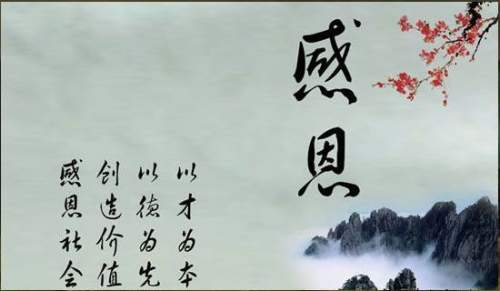 感恩
以才为本
以德为先
创造价值
感恩社会